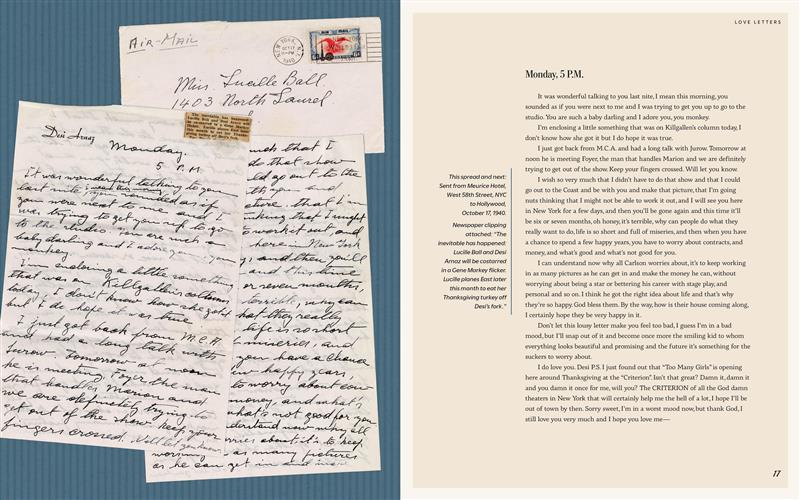 AIR-MAIL
NEW YORK, N.Y.
OCT 17
1940
Miss Lucille Ball
1403 North Laurel
The inevitable has happened:
Lucille Ball and Desi Arnaz will
be costarred in a Gene Markey
flicker. Lucille planes East later
this month to eat her Thanks-
giving turkey off Desi's fork.
Desi Arnaz
Monday.
5 P.M.
It was wonderful talking to you
last nite, I mean this morning,
you sounded as if
you were next to me and I
was trying to get you up to go
to the studio. You are such a
baby darling and I adore you, you
monkey.
I'm enclosing a little something
that was on Killgallen's column
today, I don't know how she got it
but I do hope it is true.
I just got back from M.C.A.
and had a long talk with
Jurow. Tomorrow at noon
he is meeting Foyer the man
that handles Marion and
we are definitely trying to
get out of the show keep your
fingers crossed. Will let you know.
much that I
do that show
ld go out to the
th you and
cture, that I'm
inking that I might
to work it out, and
here in New York
ys, and then you'll
and this time
or seven months,
terrible, why can
hat they really
life is so short
miseries, and
you have a chance
ew happy years,
to worry about con
money, and what's
what's not good for you
derstand now why all
rries about it's to keep
as many pictures
as he can get in and make
LOVE LETTERS
Monday, 5 P.M.
It was wonderful talking to you last nite, I mean this morning, you
sounded as if you were next to me and I was trying to get you up to go to the
studio. You are such a baby darling and I adore you, you monkey.
I'm enclosing a little something that was on Killgallen's column today, I
don't know how she got it but I do hope it was true.
I just got back from M.C.A. and had a long talk with Jurow. Tomorrow at
noon he is meeting Foyer, the man that handles Marion and we are definitely
trying to get out of the show. Keep your fingers crossed. Will let you know.
I wish so very much that I didn't have to do that show and that I could
go out to the Coast and be with you and make that picture, that I'm going
nuts thinking that I might not be able to work it out, and I will see you here
in New York for a few days, and then you'll be gone again and this time it'll
be six or seven months, oh honey, it's terrible, why can people do what they
really want to do, life is so short and full of miseries, and then when you have
a chance to spend a few happy years, you have to worry about contracts, and
money, and what's good and what's not good for you.
I can understand now why all Carlson worries about, it's to keep working
in as many pictures as he can get in and make the money he can, without
worrying about being a star or bettering his career with stage play, and
personal and so on. I think he got the right idea about life and that's why
they're so happy. God bless them. By the way, how is their house coming along,
I certainly hope they be very happy in it.
Don't let this lousy letter make you feel too bad, I guess I'm in a bad
mood, but I'll snap out of it and become once more the smiling kid to whom
everything looks beautiful and promising and the future it's something for the
suckers to worry about.
I do love you. Desi P.S. I just found out that "Too Many Girls" is opening
here around Thanksgiving at the "Criterion". Isn't that great? Damn it, damn it
and you damn it once for me, will you? The CRITERION of all the God damn
theaters in New York that will certainly help me the hell of a lot, I hope I'll be
out of town by then. Sorry sweet, I'm in a worst mood now, but thank God, I
still love you very much and I hope you love me—
This spread and next:
Sent from Meurice Hotel,
West 58th Street, NYC
to Hollywood,
October 17, 1940.
Newspaper clipping
attached: "The
inevitable has happened:
Lucille Ball and Desi
Arnaz will be costarred
in a Gene Markey flicker.
Lucille planes East later
this month to eat her
Thanksgiving turkey off
Desi's fork."
17